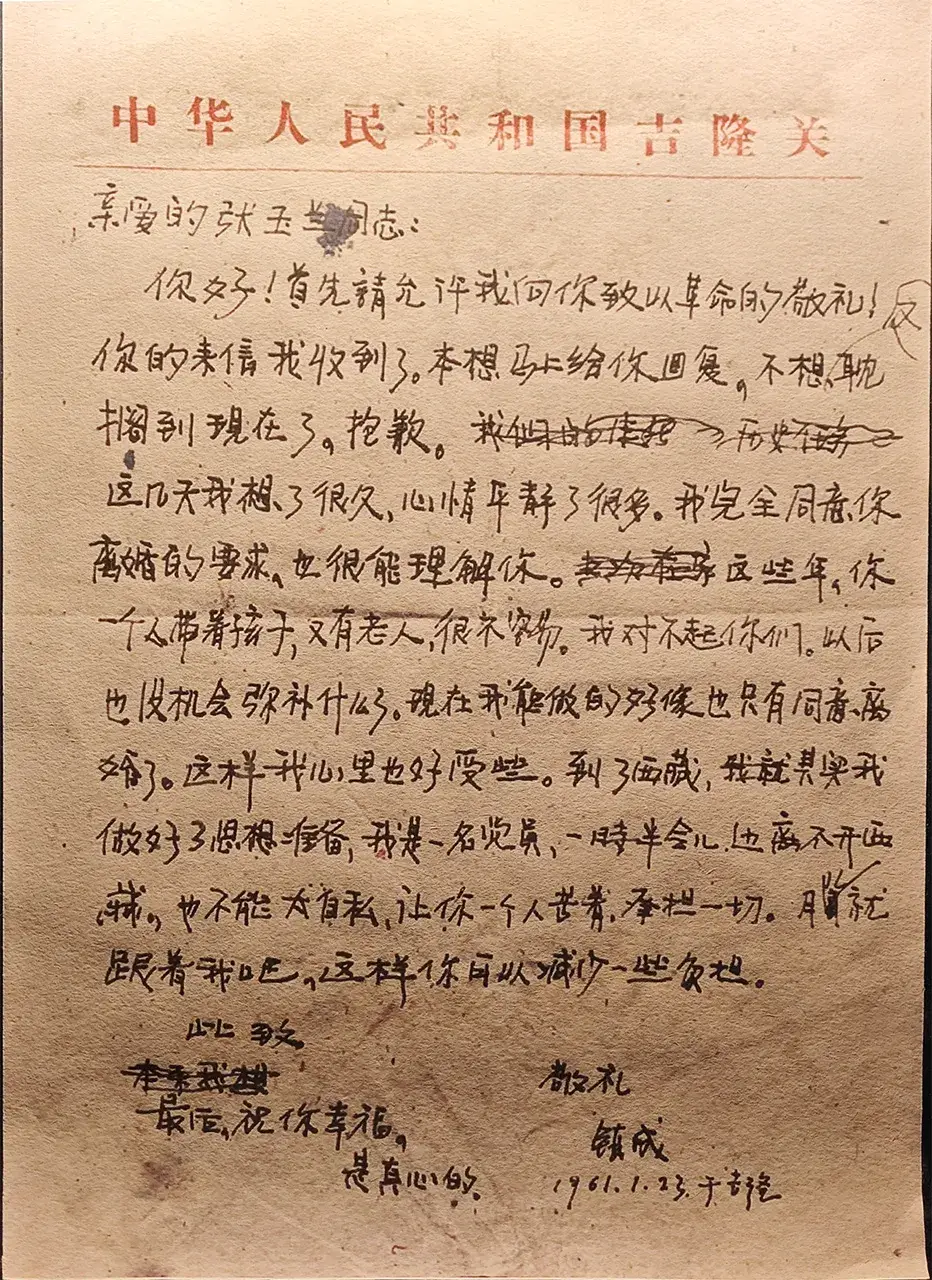 中华人民共和国吉隆关
亲爱的张玉兰同志：
你好！首先請允许我向你致以革命的敬礼！
你的来信我收到了。本想马上给你回复，不想耽
搁到现在了，抱歉。
这几天我想了很久，心情平静了很多。我完全同意你
离婚的要求，也很能理解你。这些年，你
一个人带着孩子，又有老人，很不容易。我对不起你们。以后
也没机会弥补什么了。现在我能做的好像也只有同意离
婚了。这样我心里也好受些。到了西藏，我就其实我
做好了思想准备，我是一名党员，一時半会儿也离不开西
藏。也不能太自私，让你一个人苦着，承担一切。就
跟着我吧，这样你可以减少一些负担。
此致
敬礼
最后，祝你幸福，
是真心的
镇成
1961.1.23.于吉隆